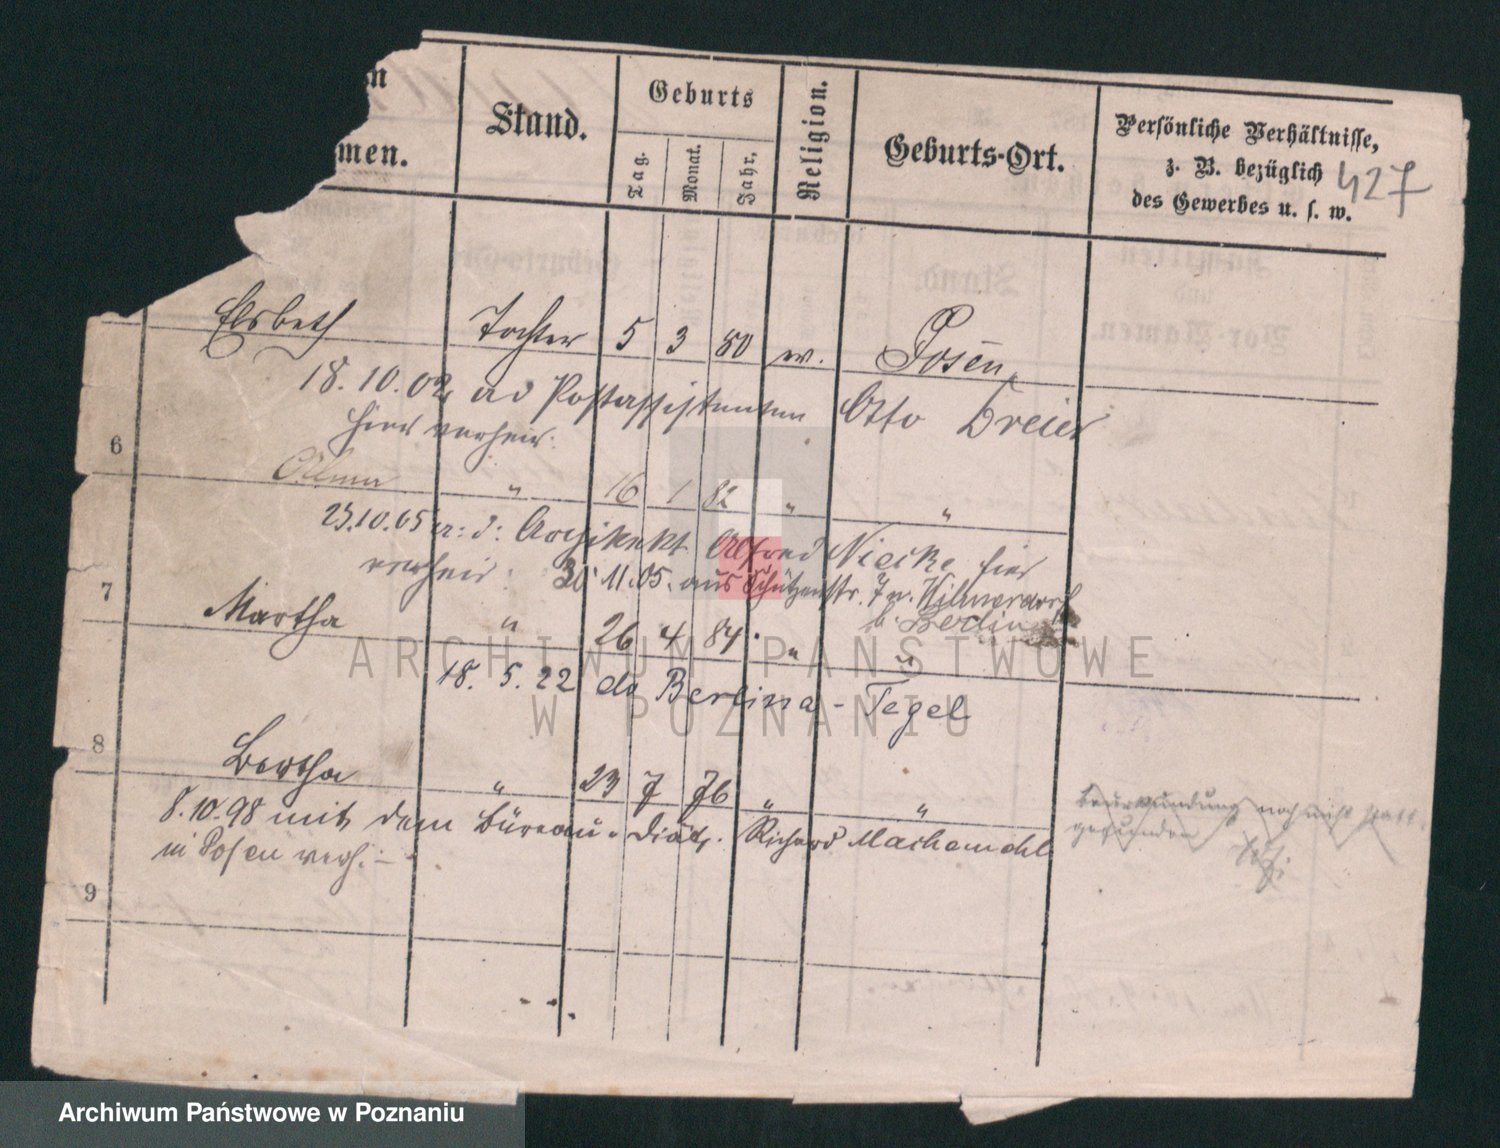 n
men.
Stand.
Geburts
Tag.
Monat.
Jahr.
Religion.
Geburts-Ort.
Persönliche Verhältnisse,
z. B. bezüglich
des Gewerbes u. s. w.
427
Elsbeth Tochter 5 3 80 ev. Posen
18.10.02 Postassistenten Otto Dreier
hier verheir.
6
" 16 1 82 " "
23.10.05 Architekt Alfred Niecke hier
verheir. 30 11.05. aus Schützenstr. 7 n. Wilmersdorf
b. Berlin
7
Martha " 26 4 84 " "
18. 5. 22 do Berlina - Tegel
8
Bertha " 23 7 76 " "
8.10.98 mit dem Büreau-Diät. Richard Machemehl
in Posen verh. -
Beurkundung noch nicht statt
gefunden
9
ARCHIWUM PAŃSTWOWE
W POZNANIU
Archiwum Państwowe w Poznaniu